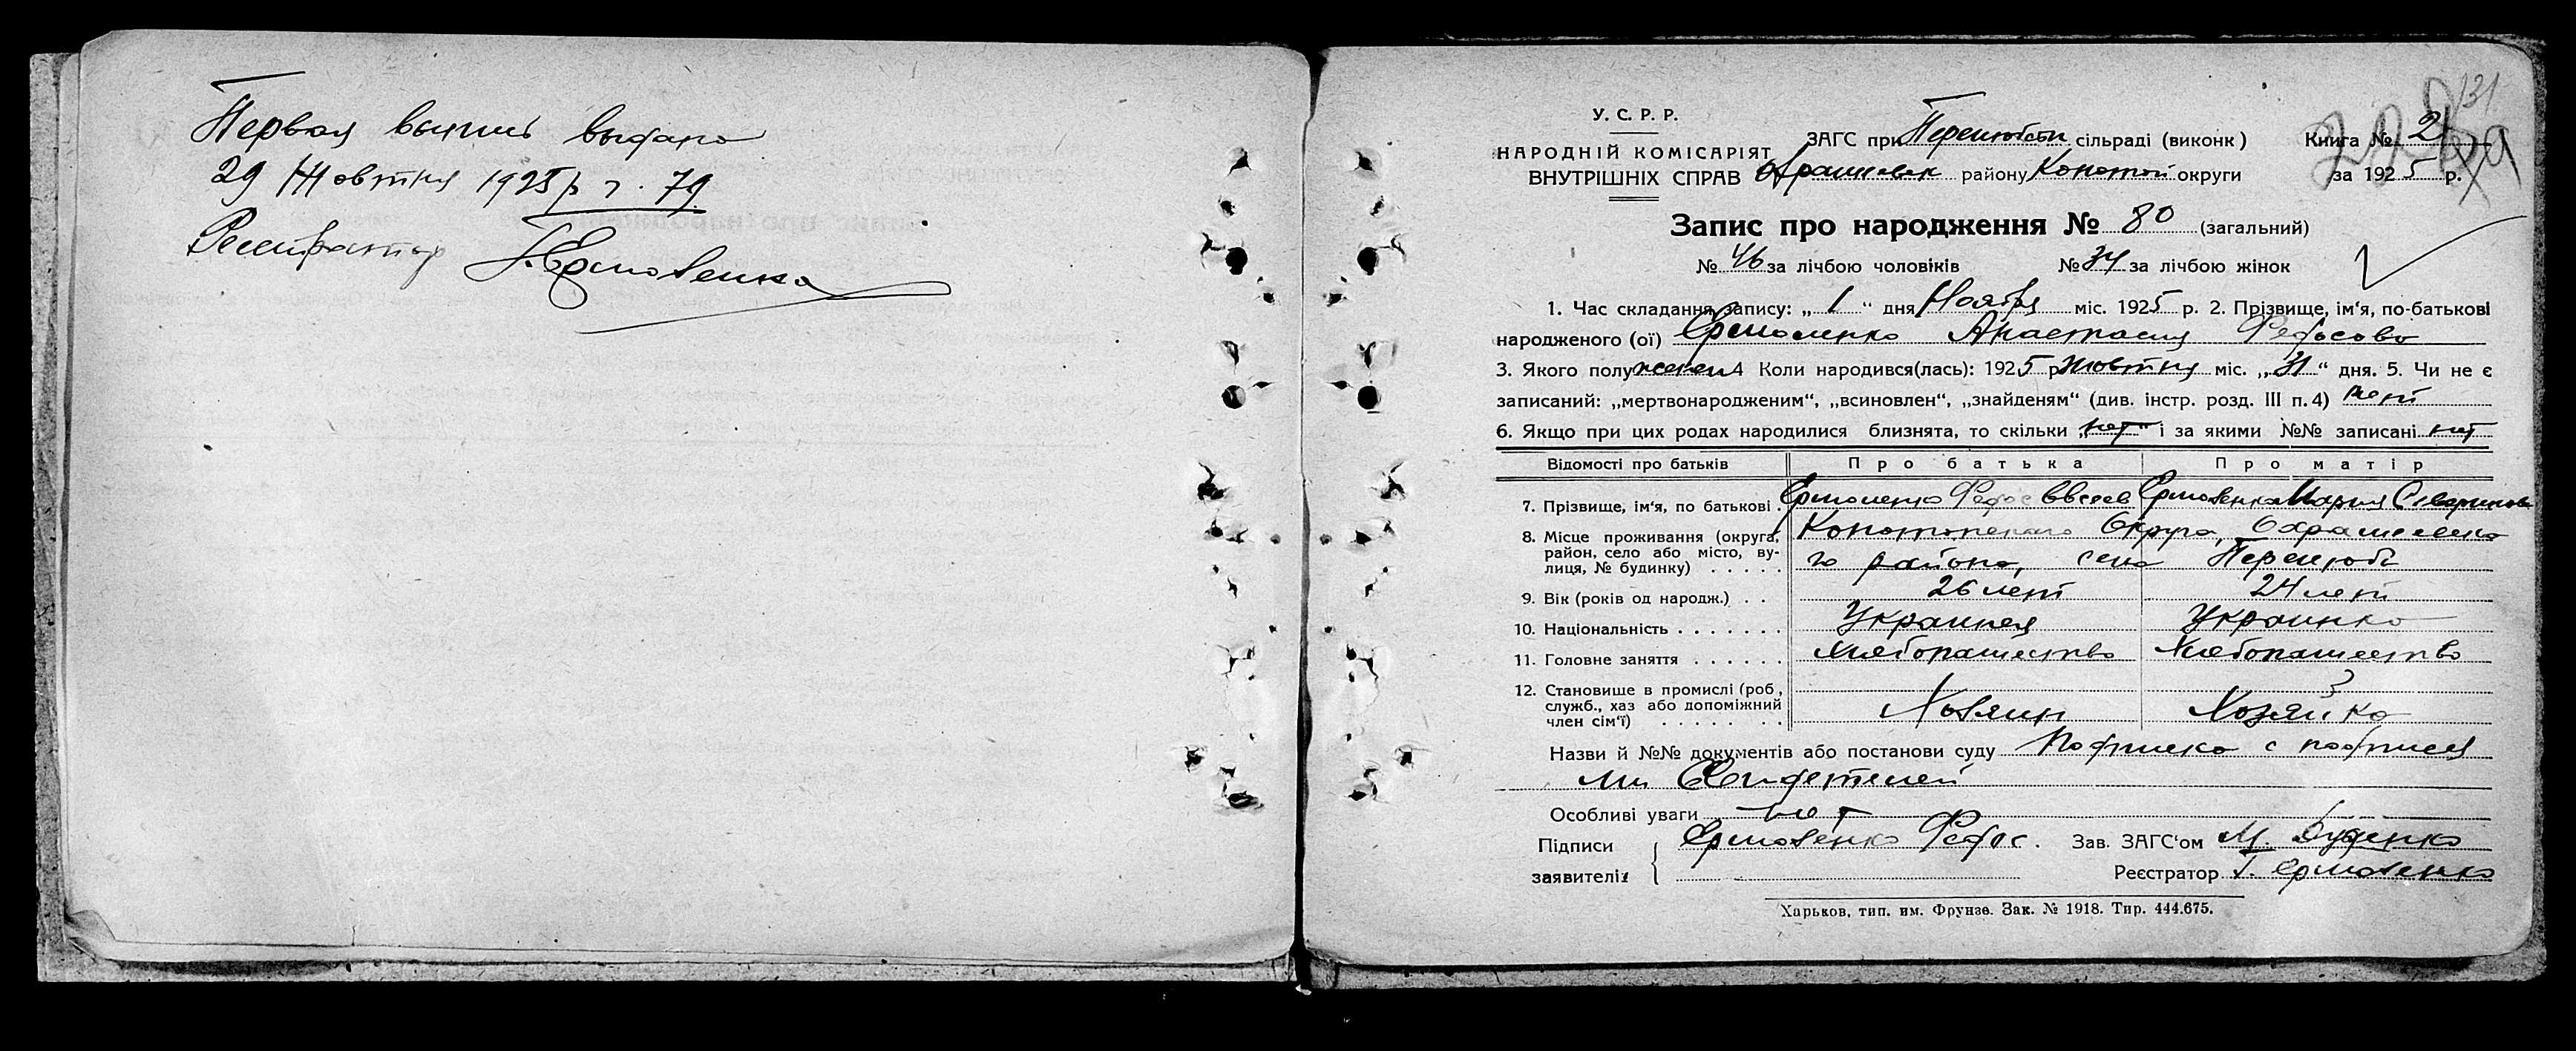 Первая выпись выдана
29 Жовтня 1925 р г. 79
Регистратор Г. Ермоленко
131
У. С. Р. Р.
НАРОДНІЙ КОМІСАРІЯТ
ВНУТРІШНІХ СПРАВ
ЗАГС при Перелюбском сільраді (виконк)
району Конотоп округи
Книга № 2
за 1925 р.
Запис про народження № 80 (загальний)
№ 46 за лічбою чоловіків № 34 за лічбою жінок
1. Час складання запису: „ 1 “ дня Ноября міс. 1925 р. 2. Прізвище, ім‘я, по-батькові
народженого (ої) Ермоленко Анастасия Федосова
3. Якого полу женск 4 Коли народився(лась): 1925 р Жовтня міс. „31“ дня. 5. Чи не є
записаний: „мертвонародженим“, „всиновлен“, „знайденям“ (див. інстр. розд. III п. 4) нет
6. Якщо при цих родах народилися близнята, то скільки „нет“ і за якими №№ записані нет
Відомості про батьків Про батька Про матір
7. Прізвище, ім‘я, по батькові Ермоленко Федос Ермоленко Мария
8. Місце проживання (округа, район, село або місто, вулиця, № будинку) Конотопского Округа,
го района, села Перелюбы
9. Вік (років од народж.) 26 лет 24 лет
10. Національність Украинец Украинка
11. Головне заняття Хлебопашество Хлебопашество
12. Становище в промислі (роб, служб., хаз або допоміжний член сім‘ї) Хозяин Хозяйка
Назви й №№ документів або постанови суду Подписка с подписями
ми Свидетелей
Особливі уваги нет
Підписи заявителів Ермоленко Федос. Зав. ЗАГС‘ом М.
Реєстратор Г. Ермоленко
Харьков, тип. им. Фрунзе. Зак. № 1918. Тир. 444.675.